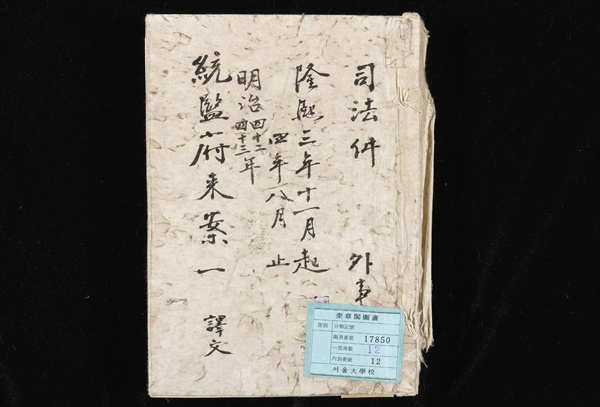 司法件 外事
隆熙三年十一月起
四年八月止
明治四十二
四十三年
統監府来案一 譯文
奎章閣圖書
類別 分類記號
圖書番號 17850
一部冊數 12
內別番號 12
서울大學校